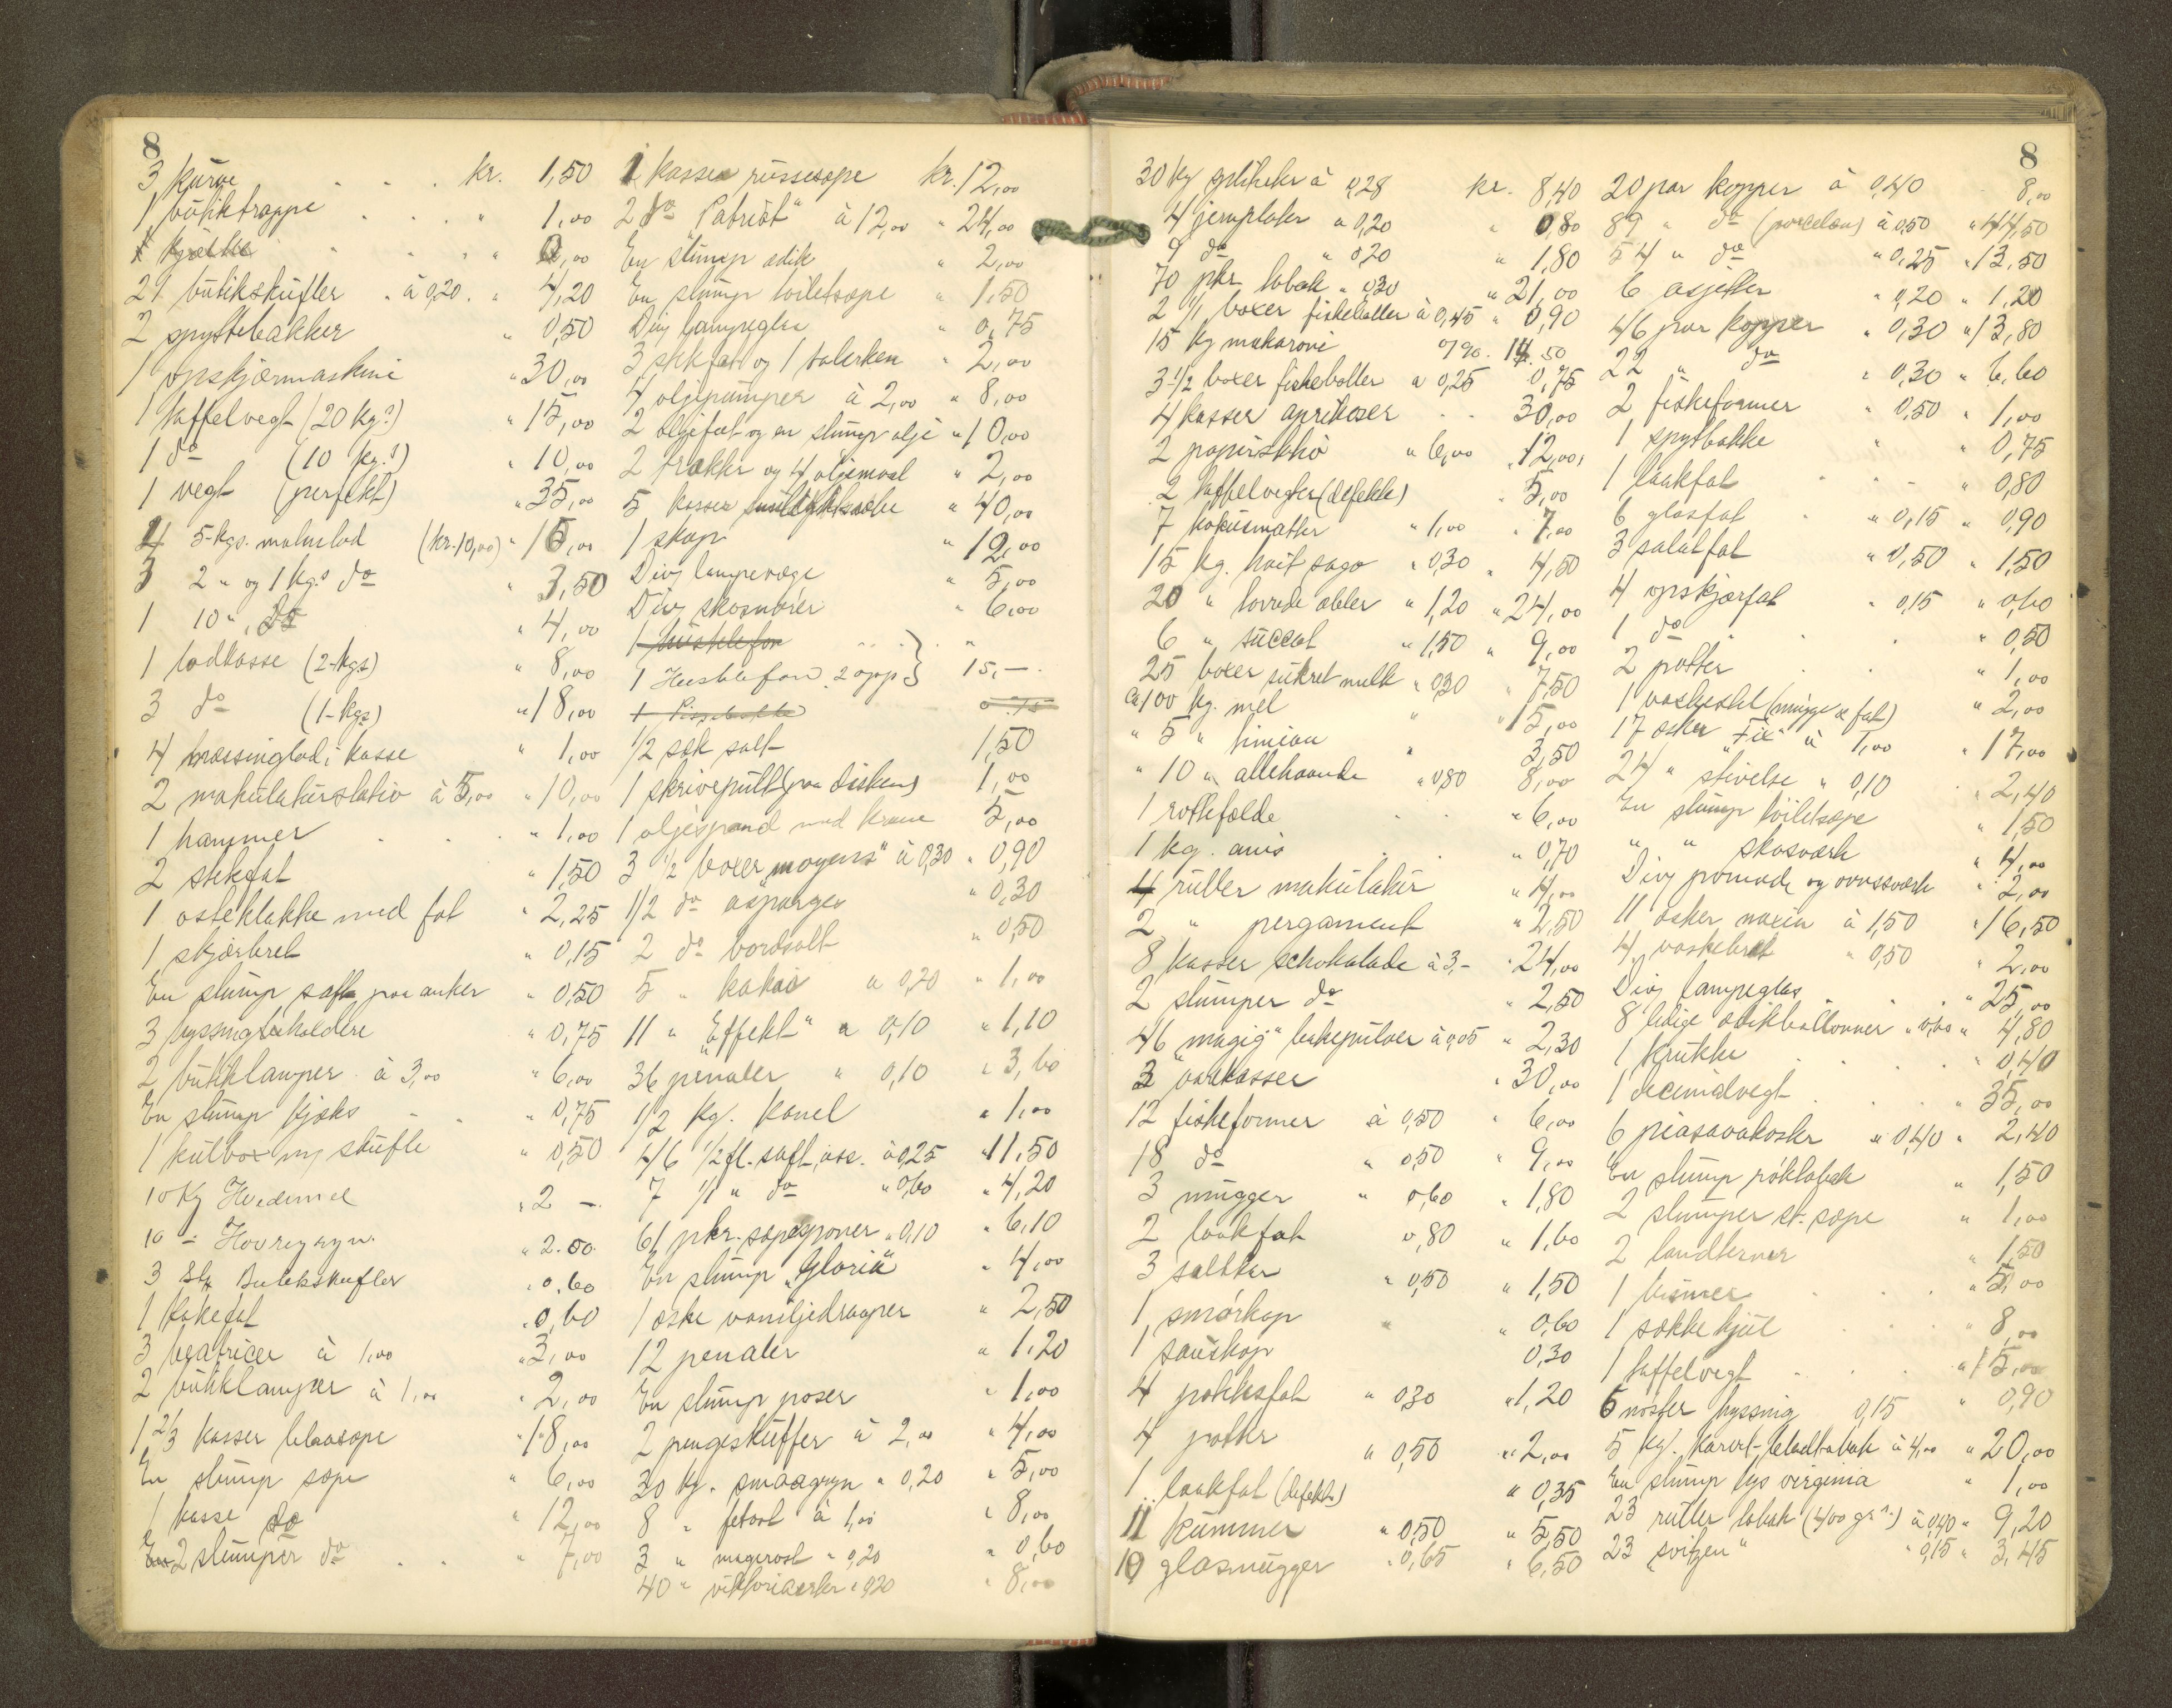 8
3 kurve . . . kr. 1,50
1 butiktrappe . . . " 1,00
1 kjøkke . . . " 2,00
21 butikskufler " à 0,20 . " 4,20
2 spyttebakker " 0,50
1 opskjærmaskine " 30,00
1 taffelvegt (20 kg.s) " 15,00
1 do (10 kg.s) " 10,00
1 vegt (perfekt) " 35,00
4 5-kgs. malmlod (kr. 10,00) " 15,00
3 2 " og 1 kg.s do " 3,50
1 10 " , do " 4,00
1 lodkasse (2-kgs) " 8,00
3 do (1-kgs) " 18,00
4 messinglod i kasse " 1,00
2 makulaturstativ à 5,00 " 10,00
1 hammer . . . " 1,00
2 stekfat " 1,50
1 osteklokke med fat " 2,25
1 skjærbret " 0,15
En slump saft paa anker " 0,50
3 hyssingbeholdere " 0,75
2 butiklamper à 3,00 " 6,00
En slump kjeks . . " 0,75
1 kulbox og skufle " 0,50
10 Kg Hvedemel " 2 –
10 – Havregryn. " 2.50.
3 Stk Butikskufler " 0.60
1 kakefat " 0,60
3 beatricer à 1,00 " 3,00
2 butiklamper à 1,00 " 2,00
1 2/3 kasser blaasope " 18,00
En slump sope " 6,00
1 kasse do " 12,00
En 2 slumper do . . " 7,00
1 kasse russesope kr. 12,00
2 do "Patriot" à 12,00 " 24,00
En slump edik " 2,00
En slump toiletsope " 1,50
Div lampeglas " 0,75
3 stekfat og 1 talerken " 2,00
4 oljepumper à 2,00 " 8,00
2 oljefat og en slump olje " 10,00
2 trakter og 4 oljemaal " 2,00
5 kasser " 40,00
1 skap " 12,00
Div lampevæge " 5,00
Div skosmører " 6,00
1 hustelefon . . "
1 Hustelefon. 2 opp } 15,—.
1 Pissebøtte 0.75
1/2 sæk salt 1,50
1 skrivepult (paa disken) 1,00
1 oljespand med krane 5,00
3 1/2 boxer "mogens" à 0,30 " 0,90
1/2 do asparges " 0,30
2 do bordsalt " 0,50
5 " kakao à 0,20 " 1,00
11 " "Effekt" à 0,10 " 1,10
36 penaler " 0,10 " 3,60
1/2 kg. kanel " 1,00
46 1/2 fl. saft, ass. à 0,25 " 11,50
7 1/1 " do " 0,60 " 4,20
61 pkr. sopesponer " 0,10 " 6,10
En slump "Gloria" " 4,00
1 æske vaniljedraaper " 2,50
12 penaler " 1,20
En slump poser " 1,00
2 pengeskuffer à 2,00 " 4,00
30 kg. smaagryn " 0,20 " 5,00
8 " fetost à 1,00 " 8,00
3 " magerost " 0,20 " 0,60
40 " viktoriaerter " 0,20 " 8,00
8
30 kg splitheter à 0,28 kr. 8,40
4 jernplater " 0,20 " 0,80
9 do " 0,20 " 1,80
70 pkr. tobak " 0,30 " 21,00
2 1/1 boxer fiskeboller à 0,45 " 0,90
15 kg makaroni 0,90. 14.50
3 1/2 boxer fiskeboller à 0,25 0,75
4 kasser aprikoser . . 30,00
2 papirstativ " 6,00 " 12,00
2 taffelvegter (defekte) " 5,00
7 kokusmatter " 1,00 " 7,00
15 kg. hvit sago " 0,30 " 4,50
20 " tørrede æbler " 1,20 " 24,00
6 " succat " 1,50 " 9,00
25 boxer sukret melk " 0,30 " 7,50
Ca 100 kg. mel " " 15,00
" 5 " timian " 3,50
" 10 " allehaande " 0,80 8,00
1 rottefælde . . " 6,00
1 kg. anis . . " 0,70
4 ruller makulatur " 4,00
2 " pergament " 2,50
8 kasser schokolade à 3,- " 24,00
2 slumper do " 2,50
46 "magig" bakepulver à 0,05 " 2,30
3 varekasser " 30,00
12 fiskeformer à 0,50 " 6,00
18 do " 0,50 " 9,00
3 mugger " 0,60 " 1,80
2 laakfat 0,80 " 1,60
3 saltkar " 0,50 " 1,50
1 smørkop " " 0,60
1 sauskop 0,30
4 potetesfat " 0,30 " 1,20
4 potter " 0,50 " 2,00
1 laakfat (defekt) " 0,35
11 kummer " 0,50 " 5,50
10 glasmugger " 0,65 " 6,50
20 par kopper à 0,40 8,00
89 " do (porcelæn) à 0,50 " 44,50
54 " do " 0,25 " 13,50
6 asjetter " 0,20 " 1,20
46 par kopper " 0,30 " 13,80
22 " do " 0,30 " 6,60
2 fiskeformer " 0,50 " 1,00
1 spytbakke " " 0,75
1 laakfat . . . " 0,80
6 glasfat " 0,15 " 0,90
3 salatfat " 0,50 " 1,50
4 opskjærfat " 0,15 " 0,60
1 do . . " 0,50
2 potter . . " 1,00
1 vaskestel (mugge & fat) " 2,00
17 æsker "Fix" à 1,00 " 17,00
24 " stivelse " 0,10 " 2,40
En slump toiletsope " 1,50
" " skosværte " 4,00
Div pomade og ovnssværte " 2,00
11 æsker noxin à 1,50 " 16,50
4 vaskebret " 0,50 " 2,00
Div lampeglas . . . " 25,00
8 ledige edikballonner " 0,60 " 4,80
1 krukke . . . " 0,40
1 decimalvegt . . . " 35,00
6 piasavakoster " 0,40 " 2,40
En slump røktobak " 1,50
2 slumper st. sope " 1,00
2 landterner " 1,50
1 bismer . . . " 5,00
1 sækkehjul . . . " 8,00
1 taffelvegt . . . " 15,00
6 nøster hyssing 0,15 " 0,90
5 kg. Karert-bladtobak à 4,00 " 20,00
En slump lys virginia " 1,00
23 ruller tobak (400 gr.s) à 0,40 " 9,20
23 " " 0,15 " 3,45